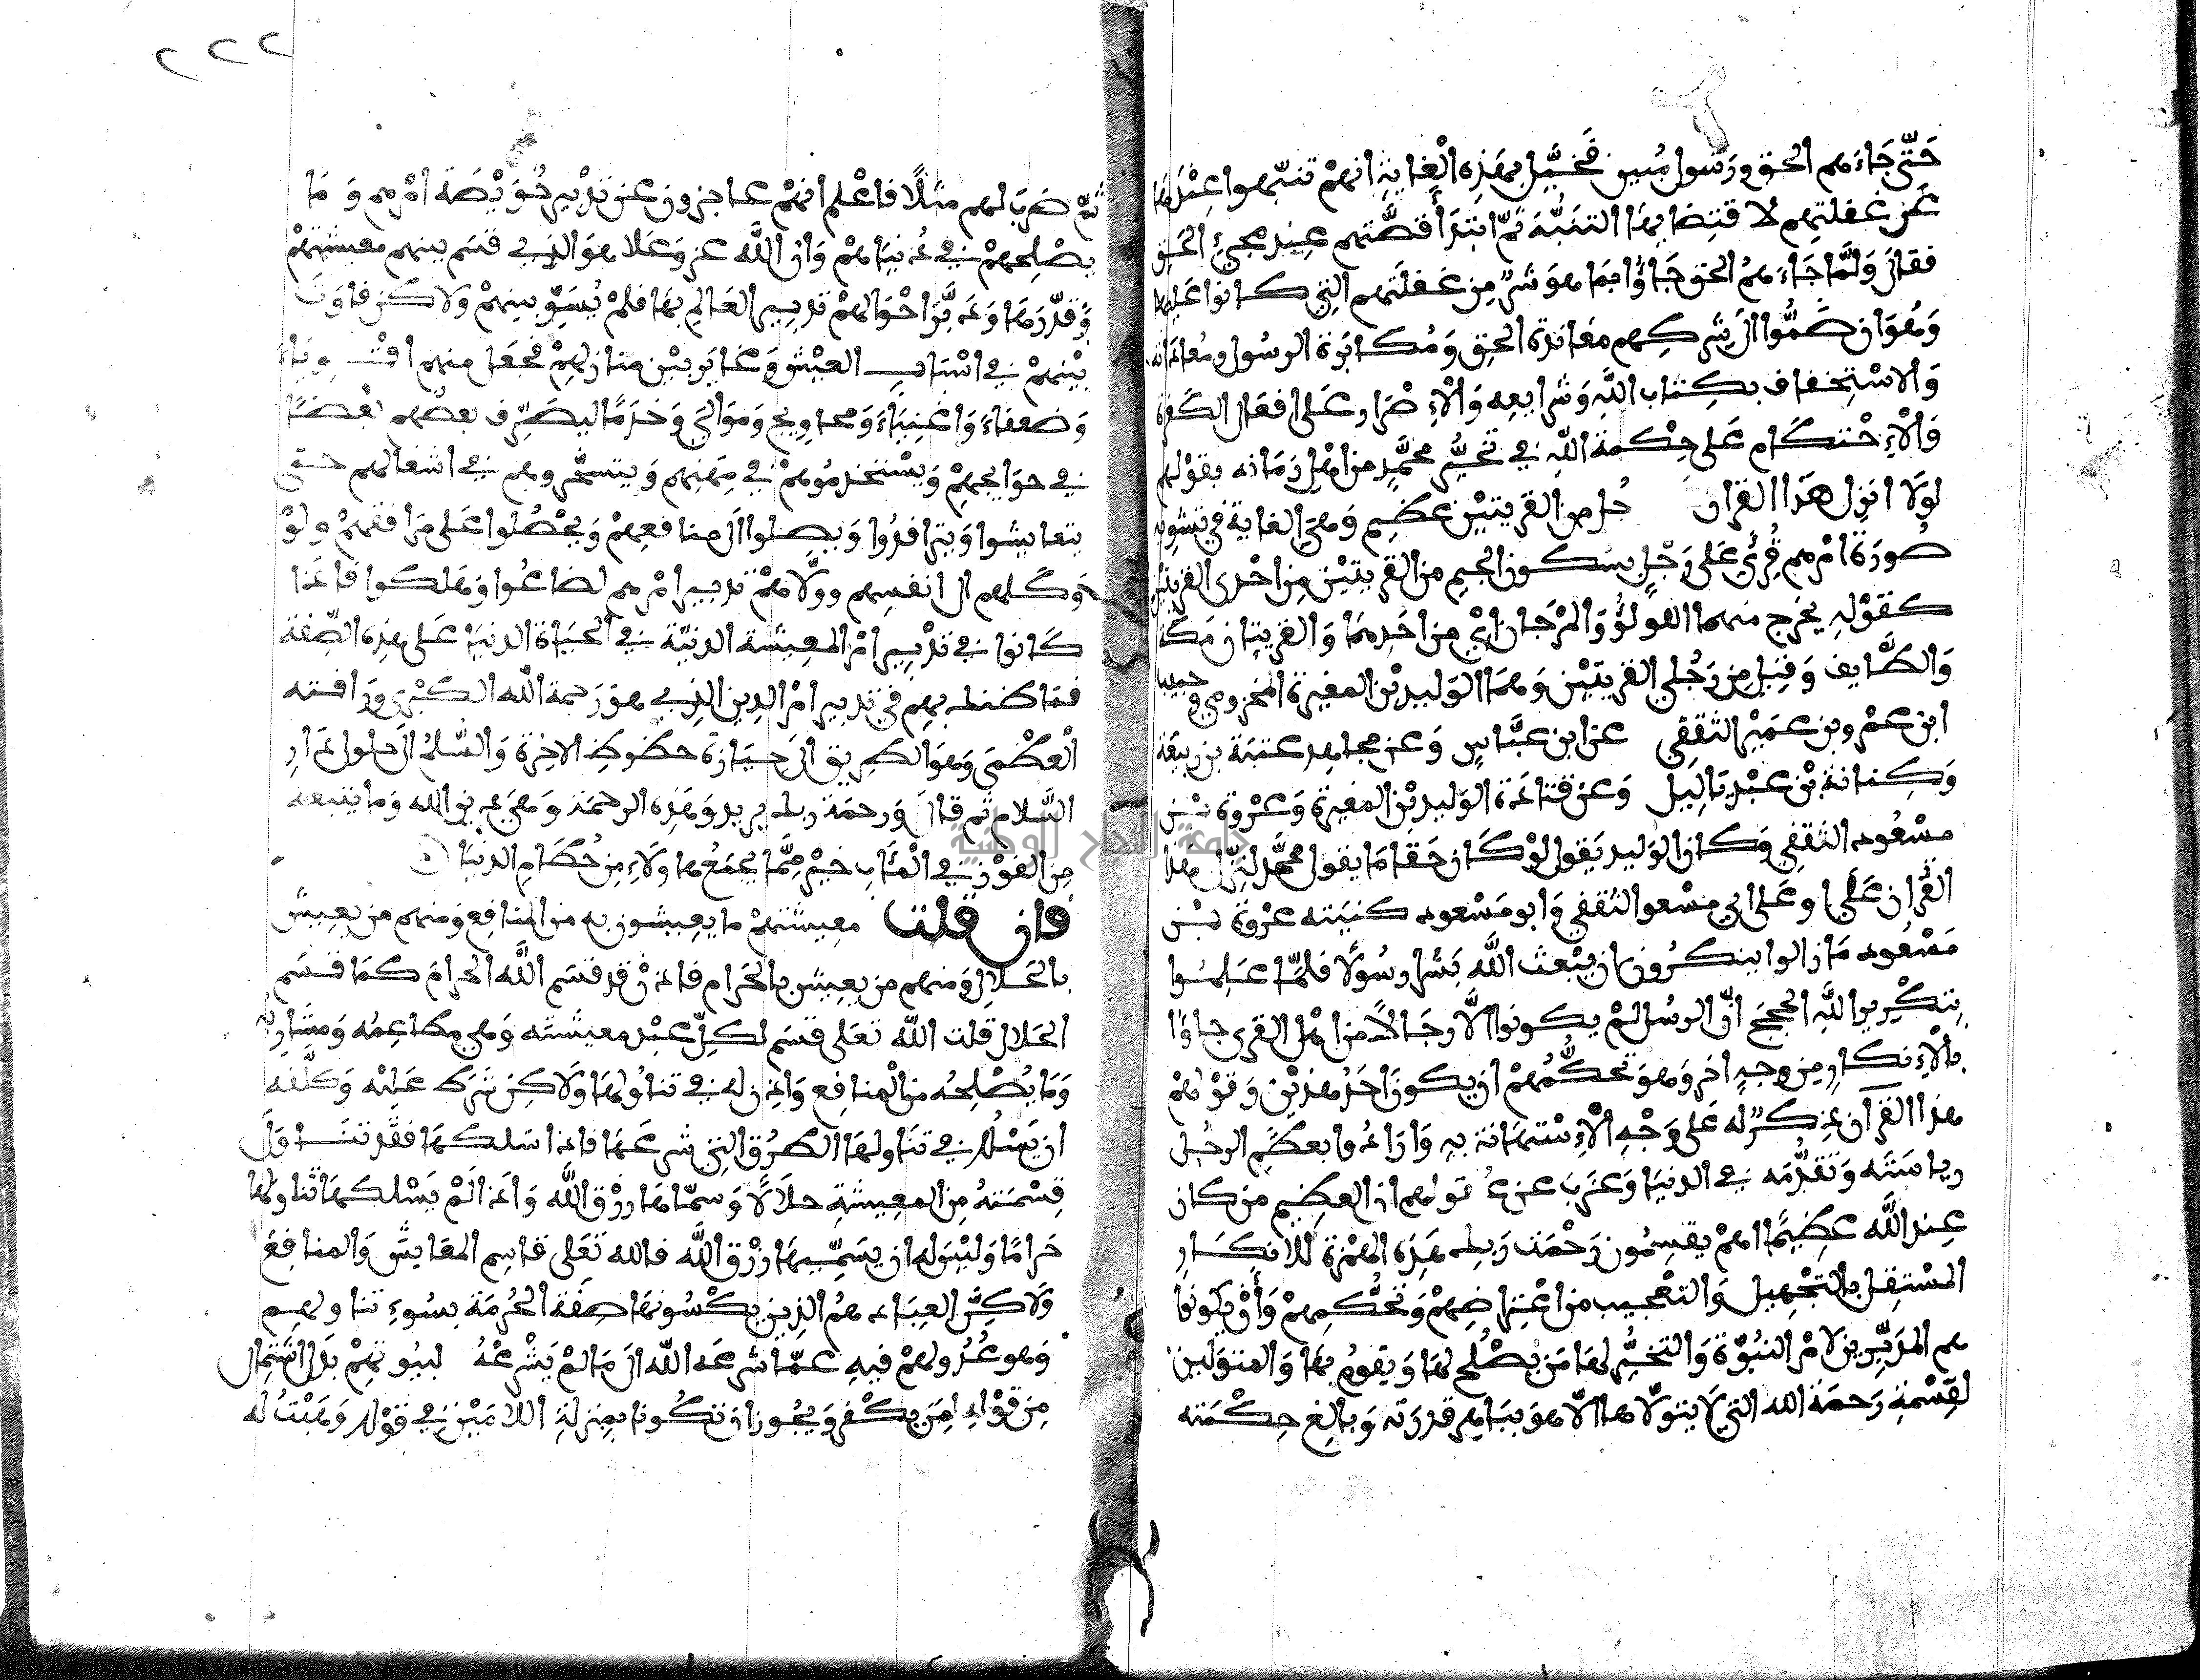 حَتّى جَاءَهم الحق ورَسول مُبين فخيَّل بهَذِه الْغاية انهمْ تنبّهوا عِنْدَهَا
عَن غفلتِهم لاقتِضايهَا التنَبُّهَ ثمّ ابْتدَأ قصَّتهم عِند مجيءِ الحق
فقال وَلمَّا جَاءَهمُ الحق جَاؤُا بمَا هوَ شرٌّ مِن غفلَتهم التِي كانوا عَليها
وَهُوَ ان ضَمُّوا الَى شركِهم معَاندة الحق وَمُكابَرة الرسُول ومُعاداته
وَالاسْتِخفاف بكِتاب اللَّهِ وَشرايعِه وَالْاِصْرار عَلى افعَال الكفرة
وَالْاِحْتكام عَلى حِكْمة اللَّهِ في تخَيُّر محمَّدٍ من اهْلِ زمَانه بقوْلهم
لوْلَا انزل هَذا القران رُجل من القريتيْن عظِيم وَهيَ الغاية في تشويه
صُورَة امْرهم قُرئَ عَلى رَجْلٍ بسكون الجيم من القريتيْن مِن احْدى القريتيْن
كقوْلهِ يخرج منهما اللولؤُ وَالمرْجَان ايْ من احَدِهمَا وَالقريتان مَكة
وَالطَّايف وَقيلَ مِن رَجُلي القريتيْن وَهمَا الوَليد بْن المغيرة المخزومي وحبيب
ابن عمْرو بن عمَيْر الثقفي عن ابن عبَّاسٍ وَعن مجاهد عتبَة بن ربيعَة
وَكِنانة بْن عبْد يَاليل وَعن قتادَة الوَليد بْن المغيرة وَعرْوة بْن
مسْعُود الثقفي وَكان الوَليد يَقول لوْ كَان حَقا مَا يقول محمَّد لنزّل هذا
القُران عَلَي او عَلى ابي مسْعو الثقفي وَابو مَسْعود كنيَته عرْوة بْن
مَسْعُود مَا زالوا ينكرُون ان يبْعث اللَّه بَشرا رسُولًا فلمَّا عَلِمُوا
بتكْرِير اللَّهِ الحججَ انّ الرسُل لمْ يكونوا الَّا رجَالًا من اهْل القرى جاؤا
بالْاِنكارِ مِن وجهٍ اخر وَهوَ تحكُّمُهمْ ان يكونَ احَدُ هذيْن وَقوْلهمْ
هذا القرآن ذِكرٌ له عَلى وَجْهِ الْاِسْتهَانة بهِ وَارَادُوا بعظَمِ الرجُل
رياسَتَه وَتقدُّمَه في الدنيَا وَعَزبَ عن عُقولهم ان العظِيم من كان
عِند اللَّه عظيمًا اهمْ يقسِمُون رَحْمَت رَبك هَذِه الهمْزة للانكَارِ
المسْتقِل بالتجْهيل وَالتعْجيب من اعْتِراضِهمْ وَتحَكُّمِهمْ وَأنْ يكونوا
هم المدَبِّرين لامْر النبُوّة وَالتخيُّر لهَا مَن يصْلُح لهَا وَيقومُ بهَا وَالمتوَلين
لقِسْمةِ رَحمَة الله التي لَا يتولّاها الّا هوَ ببَاهِر قدرَته وَبالغِ حِكْمَته
٢٢٢
ثمّ ضرَبَ لهم مثلًا فاعْلم انهمْ عاجزون عن تدْبيرِ خُوَيْصَّة امْرهم وَمَا
يصْلِحهمْ في دُنيَاهمْ وَان اللَّه عز وَعَلا هوَ الذي قسَم بينهم معيشتَهمْ
وَقدّرَها وَدبَّرَ احْوَالهمْ تدبير العَالم بهَا فلمْ يُسَوِّ بينهمْ وَلاكن فاوَتَ
بيْنهمْ في اسْبَابِ العيْش وَغايَر بيْن منازلهِمْ فجعَل منهم اقْوِياءَ
وَضعفاءَ وَاغنيَاءَ وَمحاويج وَمَوَاليَ وَخدَمًا ليصَرِّف بعضُهم بعْضًا
في حوَايجهِمْ وَيسْتخدمُوهمْ في مِهنهم وَيتسخَّروهم في اشغالهم حتى
يتعايشوا وَيترافدُوا وَيصِلوا الَى منافعِهمْ وَيحْصُلوا عَلى مَرافقهمْ ولوْ
وَكَلهم الى انفسِهم ووَلّاهمْ تدبير امْرهم لضاعُوا وَهلكوا فاذا
كَانوا في تدْبيرِ امْر المعِيشَة الدنيّة في الحيَاة الدنيَا عَلى هذِه الصِّفة
فمَا ظنك بهِم في تدبير امْر الدِين الذِي هوَ رَحمة اللَّه الكبْرى وَرَافته
الْعظْمَى وَهوَ الطرِيق الَى حيَازة حظوظِ الاخِرة وَالسُّلمُ الَى حلول دَارِ
السَّلام ثم قال وَرحمَة ربك يريد وَهَذِه الرحمَة وَهيَ دِين الله وَما يتبعه
مِن الفوْز في الْمَئابِ خيْر مِمَّا يجمَعُ هاولَاءِ مِن حُطَام الدنْيَا
فان قلت معِيشتهمْ ما يعِيشون به من المنافِع وَمنهم من يعِيش
بالحَلالِ وَمنهم من يعِيش بالحَرام فاذنْ قد قسَم اللَّه الحرامَ كمَا قسَم
الحَلال قلت اللَّه تعَلى قسَم لكلّ عبْد معيشتَه وَهي مطاعِمُه وَمشَاربُه
وَمَا يُصْلِحُه من الْمنافِع وَاذِن له في تناوُلهَا وَلاكِن شرَط عَليْه وَكلَّفه
ان يَسْلُك في تنَاولهَا الطرُق التِي شرعَهَا فاذا سَلكهَا فقَد تنَاوَل
قِسْمَتهُ مِن المعِيشةِ حلَالًا وَسمّاها رزْق اللَّه وَاذا لَمْ يَسْلكهَا تناولها
حَرامًا وَليْسَ له ان يسَمِّيهَا رزْق اللَّه فالله تعَلى قاسم المعَايش وَالمنافِع
وَلاكنَّ العِبَاد همُ الذِين يكْسُونهَا صِفَة الحُرمَة بسُوءِ تناولهم
وَهو عُدُولهمْ فيهِ عمّا شرعَه اللَّه الَى مَا لمْ يَشْرعْهُ لبيُوتهِمْ بدَل اشتمال
مِن قوْلهِ لِمَن يكْفر وَيجُوز ان تكُونا بمنزلةِ اللامَيْن في قوْلك وَهَبْتُ له